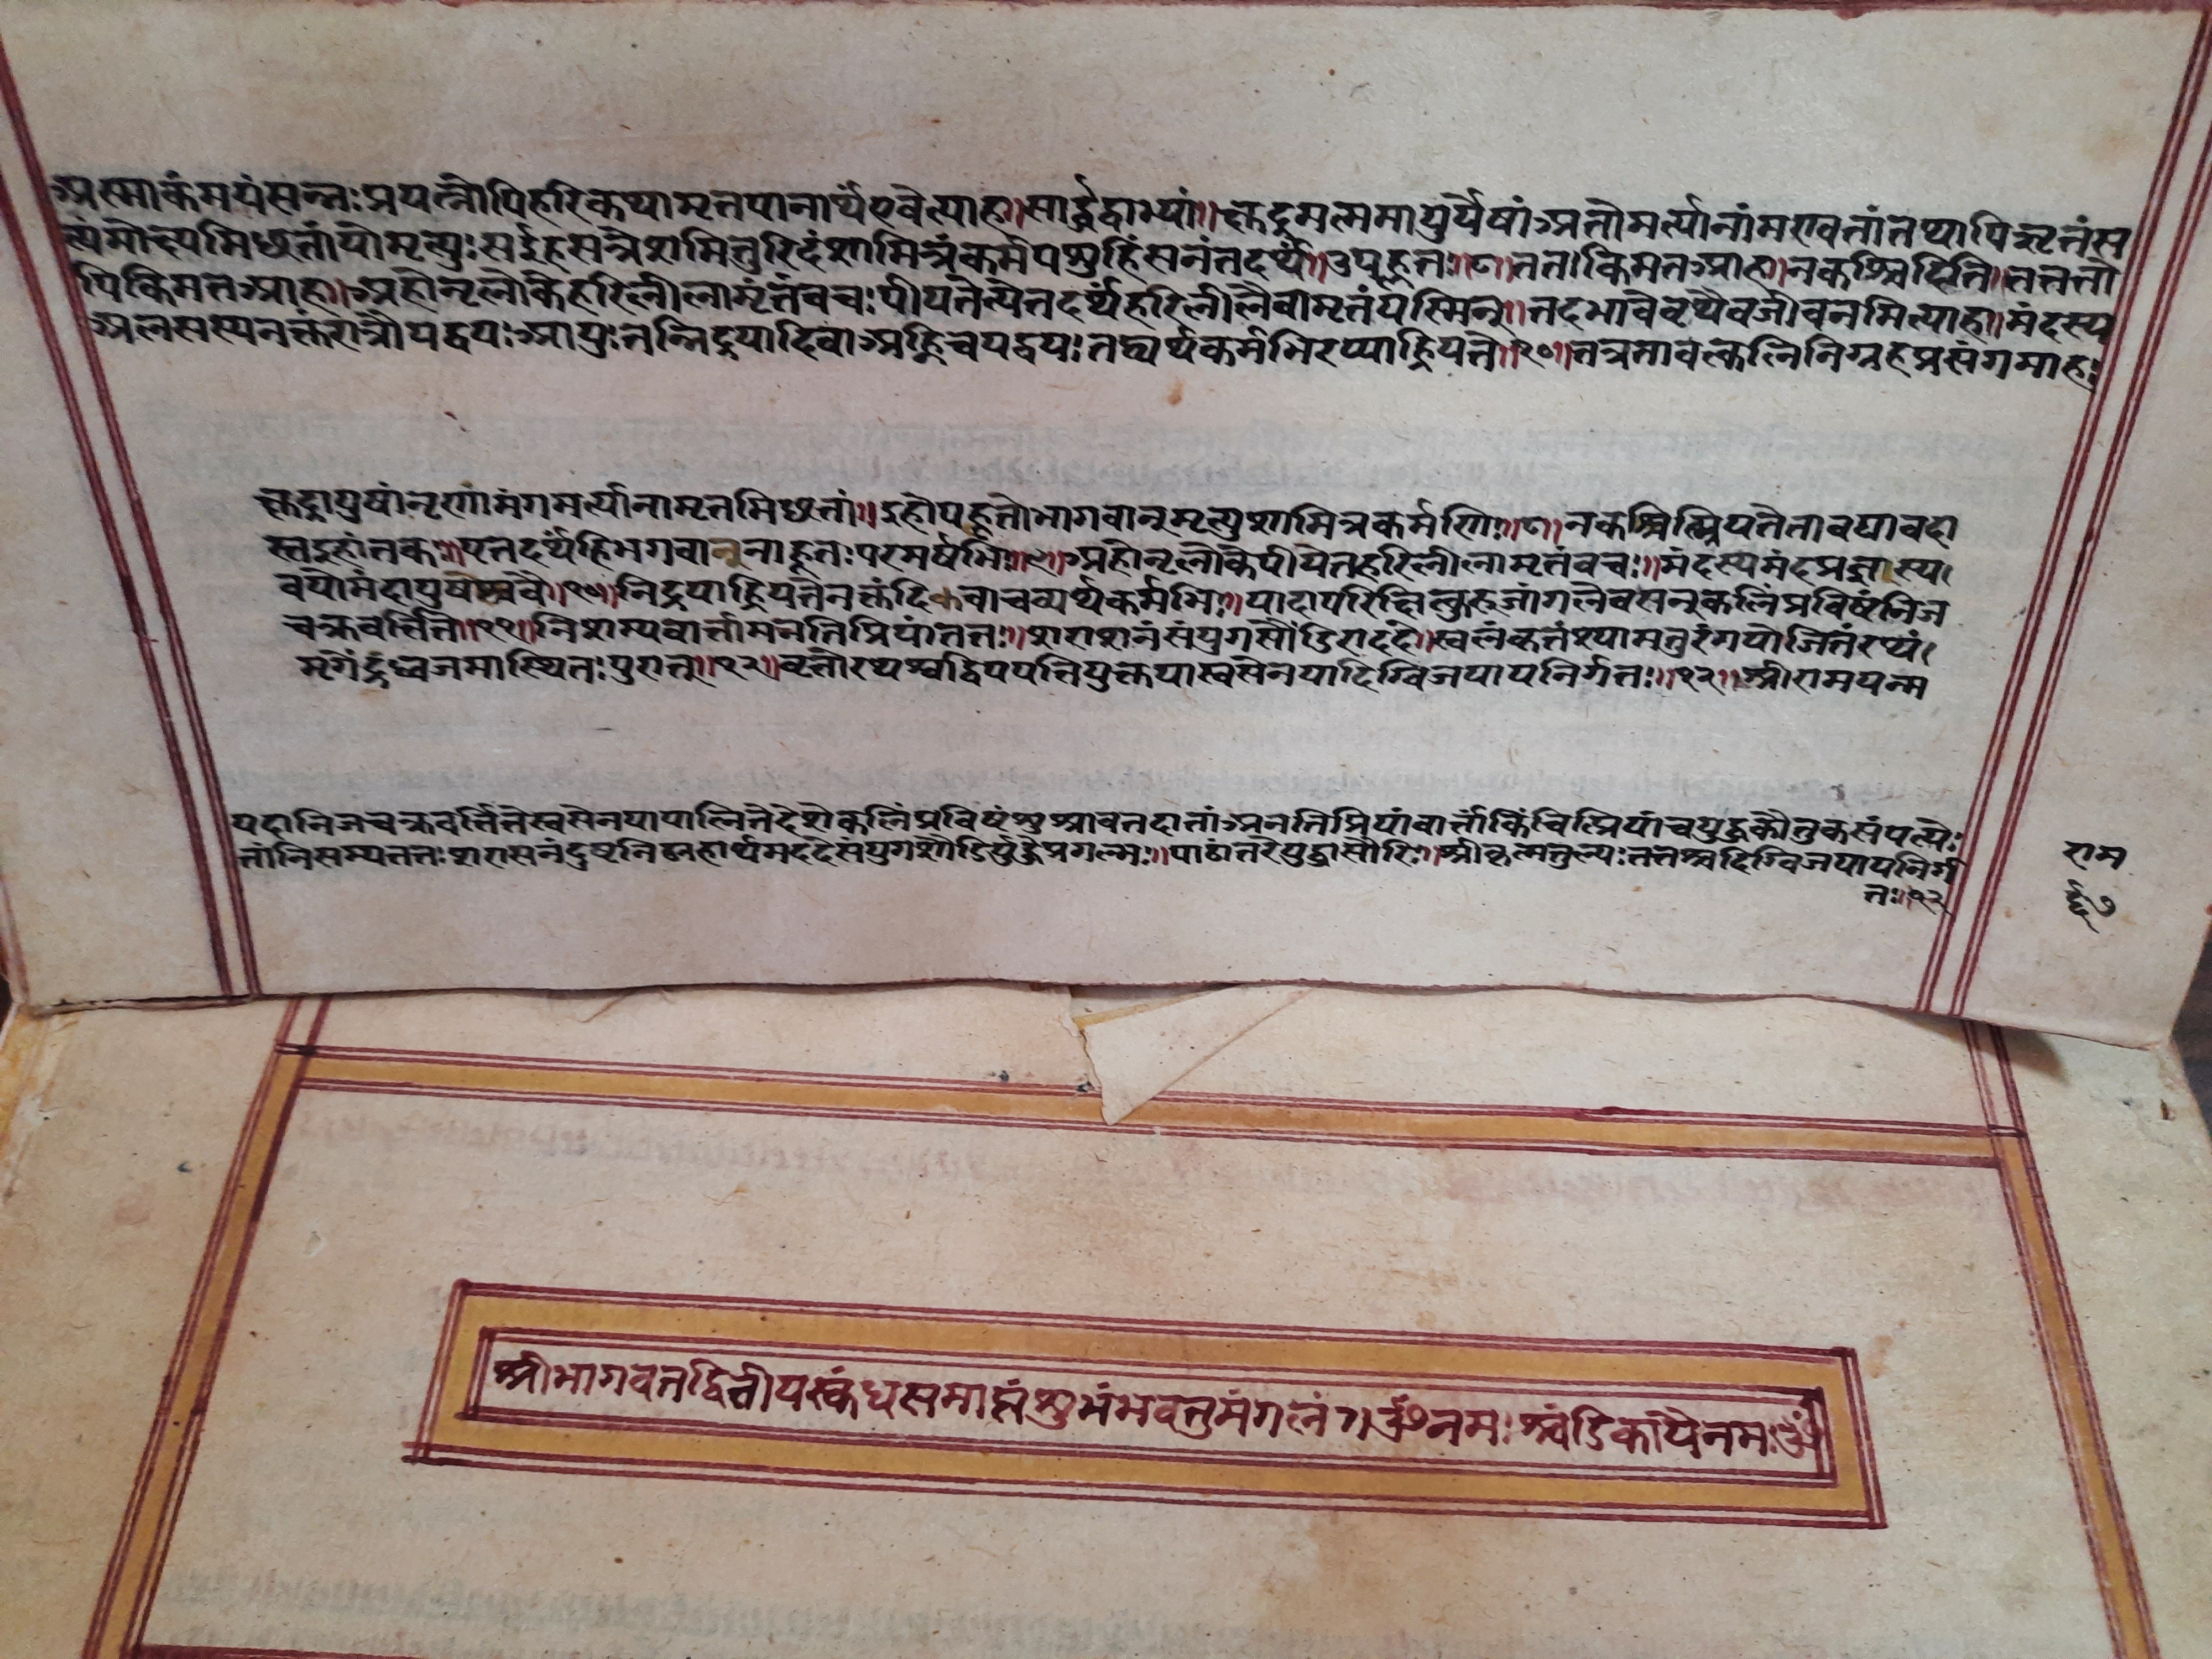 अस्माकंमयंसन्नःप्रयत्नोपिहरिकथामृतपानार्थएवेत्याह॥सार्द्धद्वाभ्यां॥क्षुद्रमल्पमायुर्येषांअतोमर्त्यानांमरणवतांतथापिऋतंस
त्यंमोक्षमिछतांयोमृत्युःसईहसत्रेशमितुरिदंशामित्रंकर्मपशुहिंसनंतदर्थं॥उपहूतः॥८॥ततःकिमतआह॥नकश्चिदिति॥ततो
पिकिमतआह॥अहोनृलोकेहरिलीलामृतंवचःपीयतेत्येतदर्थंहरिलीलैवामृतंयस्मिन्॥तदभावेवृथैवजीवनमित्याह॥मंदस्य
अलसस्यनक्तंरात्रौयद्वयःआयुःतन्निद्रयादिवाअह्निचयद्वयःतद्व्यर्थकर्मभिरप्याह्रियते॥१०॥तत्रतावत्कलिनिग्रहप्रसंगमाह॥
क्षुद्रायुषांनृणामंगमर्त्यानामृतमिछतां॥इहोपहूतोभगवान्मृत्युशामित्रकर्मणि॥८॥नकश्चिन्म्रियतेतावद्यावदा
स्तइहांतकः॥एतदर्थंहिभगवानूनाहूतःपरमर्षिभिः॥९॥अहोनृलोकेपीयेतहरिलीलामृतंवचः॥मंदस्यमंदप्रज्ञास्य।
वयोमंदायुषश्चवै॥१०॥निद्रयाह्रियतेनक्तंदिवाचव्यर्थकर्मभिः॥यदापरिक्षित्कुरुजांगलेवसन्कलिंप्रविष्टंनिज
चक्रवर्त्तिते॥११॥निशम्यवार्त्तामनतिप्रियांततः॥शराशनंसंयुगसौंडिराददे॥स्वलंकृतंश्यामतुरंगयोजितंरथं।
मृगेंद्रध्वजमास्थितःपुरात्॥१२॥वृतोरथश्वद्विपपत्तियुक्तयास्वसेनयादिग्विजयायनिर्गतः॥१२॥श्रीरामयन्म
यदानिजचक्रवर्त्तितेस्वसेनयापालितेदेशेकलिंप्रविष्टंशुश्रावतदातांअनतिप्रियांवार्त्तांकिंचित्प्रियांचयुद्धकौतुकसंपत्यैः
तांनिसम्यततःशरासनंदुष्टनिग्रहार्थमददेसंयुगशोंडियुद्धेप्रगल्भः॥पाठांतरेयुद्धासौरिः॥श्रीकृष्णतुल्यःततश्चदिग्विजयायनिर्ग
तः॥१२
राम
श्रीभागवतद्वितीयस्कंधसमाप्तंशुभंभवतुमंगलं१ॐनमःश्चंडिकायैनमःॐ